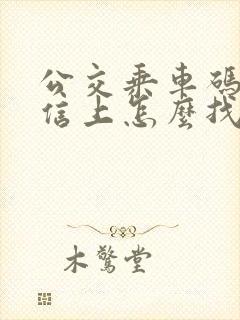 公交乘車碼
信上怎麼找
木驚堂